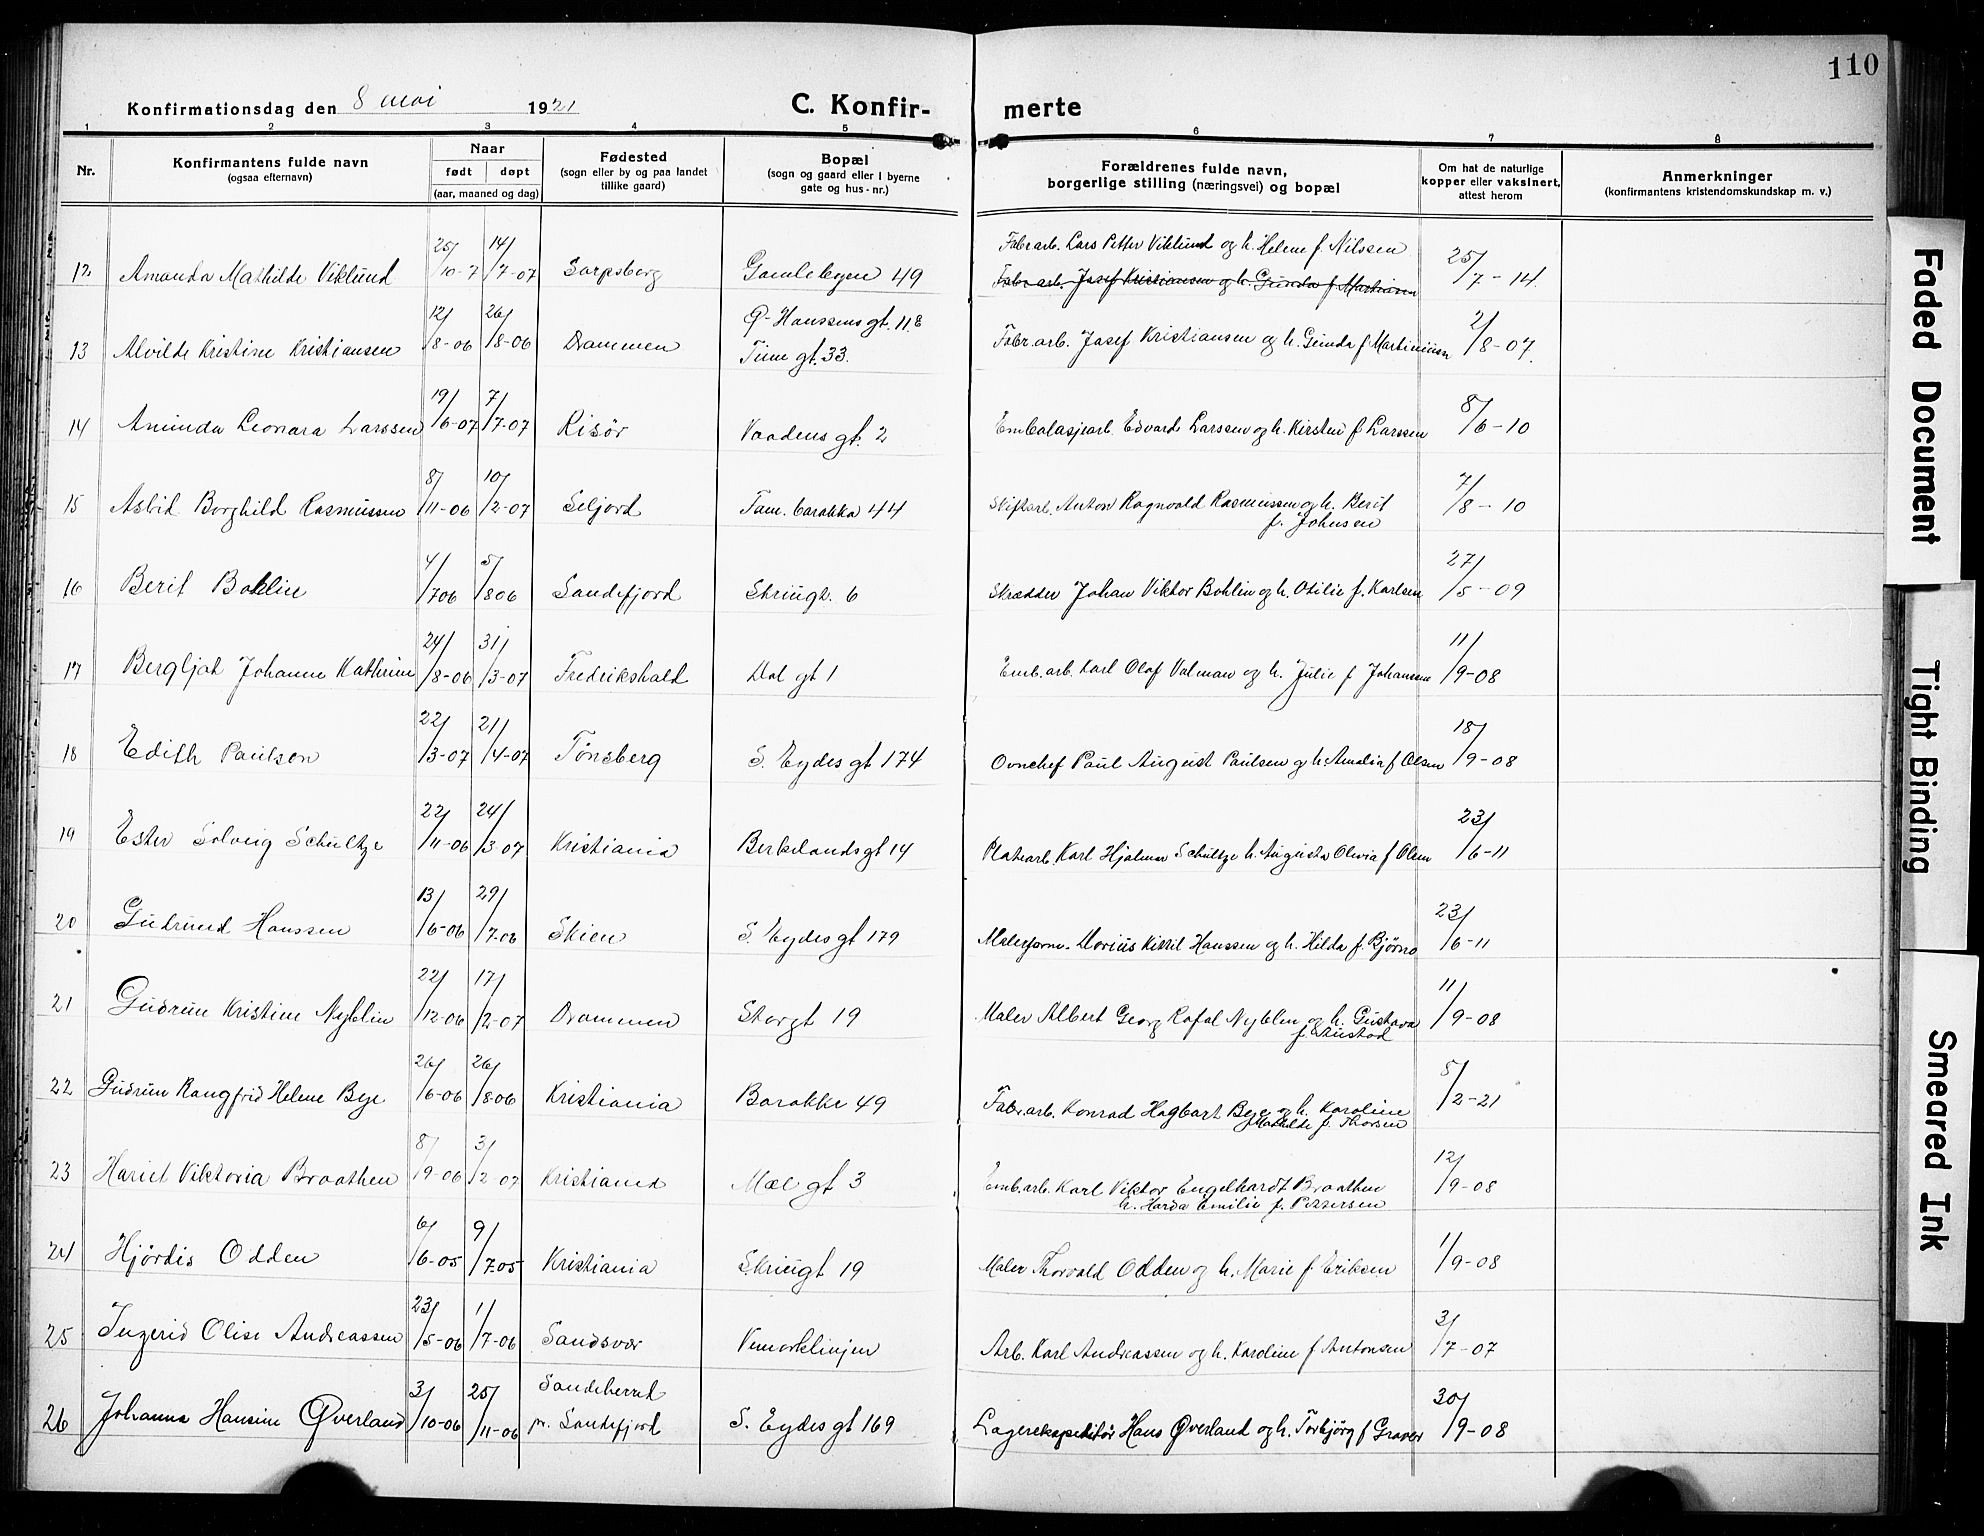 110
Konfirmationsdag den 8 mai 1921
C. Konfirmerte
1 2 3 4 5 6 7 8
Nr.
Konfirmantens fulde navn
(ogsaa efternavn)
Naar
født døpt
(aar, maaned og dag)
Fødested
(sogn eller by og paa landet
tillike gaard)
Bopæl
(sogn og gaard eller i byerne
gate og hus-nr.)
Forældrenes fulde navn,
borgerlige stilling (næringsvei) og bopæl
Om hat de naturlige
kopper eller vaksinert,
attest herom
Anmerkninger
(konfirmantens kristendomskundskap m. v.)
12 Amanda Mathilde Viklund 25/10-7 14/7-07 Sarpsborg Gamlebyen 49 Fabr arb. Lars Petter Viklund og h. Helene f. Nilssen 25/7-14
Fabr. arb. Josef Kristiansen og h. Gunda f. Martinsen
13 Alvilde Kristine Kristiansen 12/8-06 26/8-06 Drammen Ø-Hanssens gt. 11 E
Tinn gt. 33. Fabr. arb. Josef Kristiansen og h. Gunda f Martinsen 2/8-07.
14 Aminda Leonara Larssen 19/6-07 7/7-07 Risör Vaadens gt. 2 Embalasjearb. Edvard Larssen og h. Kirsten f. Larssen 8/6-10
15 Asbid Borghild Rasmussen 8/11-06 10/2-07 Seljord Tam. barakka 44 Skiftarb. Anton Ragnvald Rasmussen og h. Berit
f. Johnsen 7/8-10
16 Berit Bohlin 4/706 5/806 Sandefjord Skriugt. 6 Skrædder Johan Viktor Bohlin og h. Otilie f. Karlsen 27/5-09
17 Bergljot Johanne Kathrine 24/8-06 31/3-07 Fredrikshald Dal gt 1 Emb. arb. Karl Olaf Valman og h. Julie f Johanssen 11/9-08
18 Edith Paulsen 22/3-07 21/4-07 Tønsberg S. Eydes gt 174 Ovnchef Paul August Paulsen og h. Amalia f Olsen 18/9-08
19 Ester Solveig Schultze 22/11-06 24/3-07 Kristiania Berkelands gt 14 Platearb. Karl Hjalmar Schultze h. Augusta Olivia f Olsen 23/6-11
20 Gudrund Hanssen 13/6-06 29/7-06 Skien S. Eydes gt 179 Malerform. Marius Kittil Hanssen og h. Hilda f. Bjørno 23/6-11
21 Gudrun Kristine Nyblin 22/12-06 17/2-07 Drammen Storgt 19 Maler Albert Georg Rafal Nyblin og h. Gustava
f. Austad 11/9-08
22 Gudrun Rangfrid Helene Bye 26/6-06 26/8-06 Kristiania Barakke 49 Fabr. arb. Konrad Hagbart Bye og h. Karoline
Mathilde f. Thorsen 5/2-21
23 Hariet Viktoria Braathen 8/9-06 3/2-07 Kristiania Mæl gt 3 Emb. arb. Karl Viktor Engelhardt Braathen
h. Harda Emilie f. Pettersen 12/9-08
24 Hjördis Odden 6/6-05 9/7-05 Kristiania Skriugt 19 Maler Thorvald Odden og h. Marie f Eriksen 1/9-08
25 Ingerid Olise Andreassen 23/5-06 1/7-06 Sandsvær Vemorklinjen Arb. Karl Andreassen og h. Karoline f Antonsen 3/7-07
26 Johanna Hansine Øverland 3/10-06 25/11-06 Sandeherred
pr. Sandefjord S. Eydes gt 169 Lagerekspeditör Hans Øverland og h. Torbjörg f Graver 30/9-08
Faded Document
Tight Binding
Smeared Ink